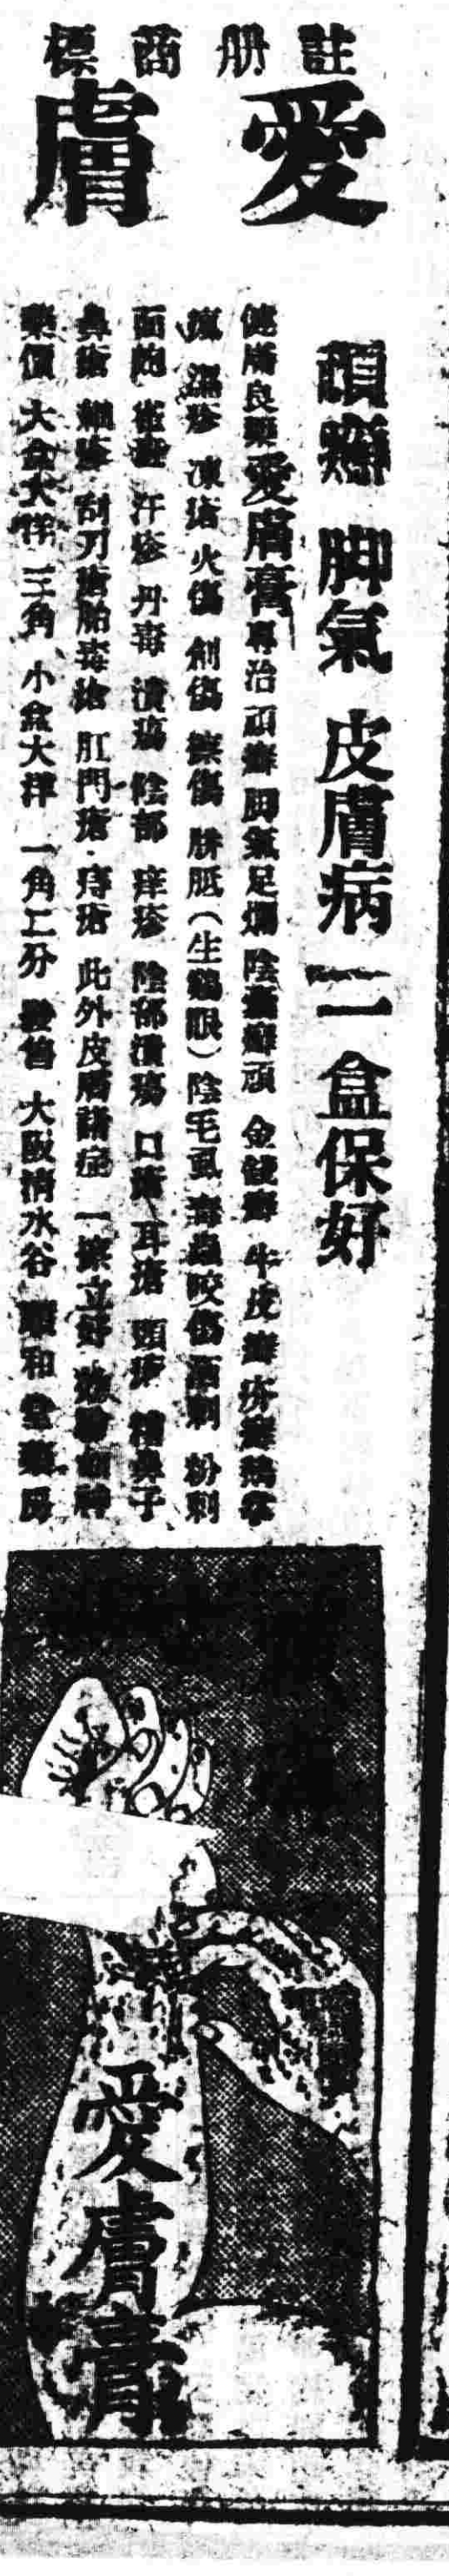 註册商標
愛膚
頑癬 脚氣 皮膚病 一盒保好
健膚良藥愛膚膏專治 頑癬 脚氣足爛 陰囊癬頑 金錢癬 牛皮癬 疥癬鵝掌
瘋 濕疹 凍瘡 火傷 創傷 擦傷 胼胝（生鷄眼）陰毛虱 毒蟲咬傷酒刺 粉刺
面皰 雀斑 汗疹 丹毒 潰瘍 陰部 痒疹 陰部潰瘍 口瘡 耳瘡 頭疹 鼻子
鼻瘡 剃刀瘡胎毒瘡 肛門瘡 痔瘡 此外皮膚諸症 一擦立好
藥價 大盒大洋 三角 小盒大洋 一角二分 發售 大阪清水谷 和堂藥房
愛膚膏